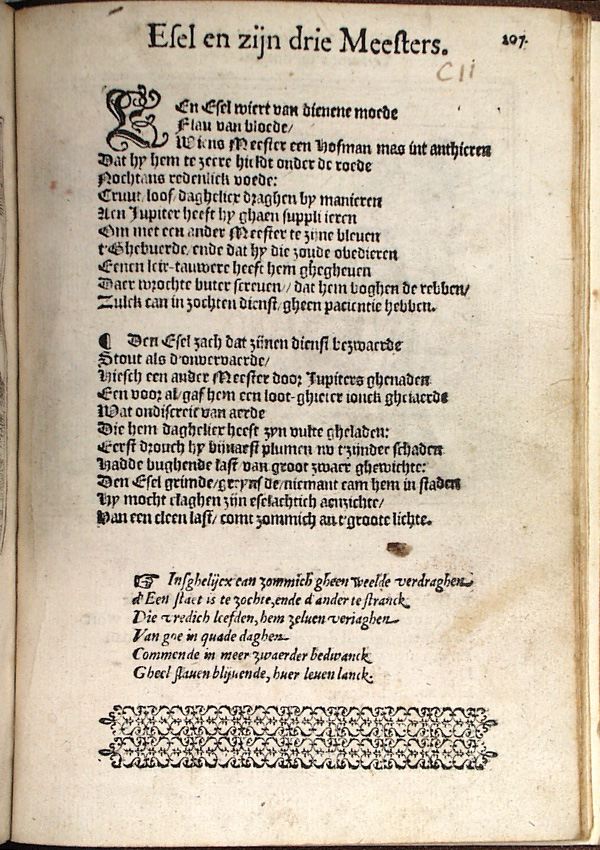 Esel en zijn drie Meesters. 207.
C11
EEn Esel wiert van dienene moede
Flau van bloede/
Wiens Meester een Hofman was int anthieren
Dat hy hem te zeere hieldt onder de roede
Nochtans redenlick voede:
Cruut/loof/daghelicx draghen by manieren
Aen Jupiter heeft hy ghaen supplieren
Om met een ander Meester te zijne bleuen
t'Ghebuerde/ende dat hy die zoude obedieren
Eenen leir-tauwere heeft hem ghegheuen
Daer wrochte buter screuen// dat hem boghen de rebben/
Zulck can in zochten dienst/gheen pacientie hebben.
¶ Den Esel zach dat zijnen dienst bezwaerde
Stout als d'onvervaerde/
Hiesch een ander Meester door Jupiters ghenaden
Een voor al/gaf hem een loot-ghieter ionck ghetaerde
Wat ondiscreit van aerde
Die hem daghelicx heeft zyn vulte gheladen:
Eerst drouch hy bijnaest plumen nv t'zijnder schaden
Hadde bughende last van groot zwaer ghewichte:
Den Esel grimde/greynsde/niemant cam hem in staden
Hy mocht claghen zijn eselachtich aenzichte/
Van een cleen last/ comt zommich an t'groote lichte.
☞ Insghelijcx can zommich gheen weelde verdraghen
d'Een staet is te zochte,ende d'ander te stranck
Die vredich leefden,hem zeluen veriaghen
Van goe in quade daghen
Commende in meer zwaerder bedwanck
Gheel slauen blijuende, huer leuen lanck.